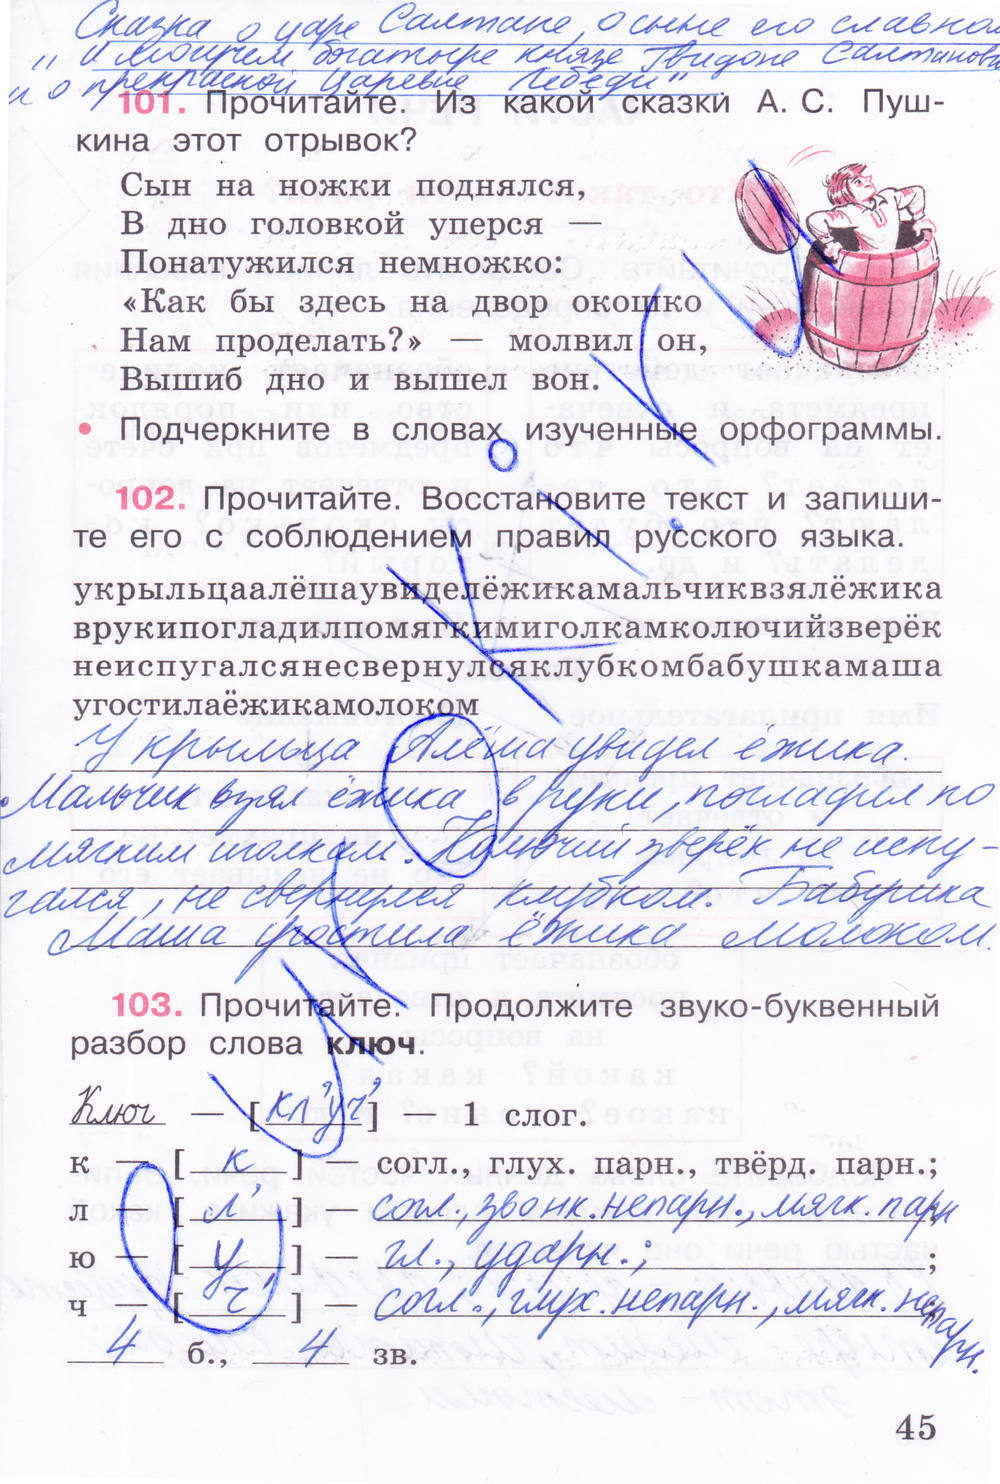 Сказка о царе Салтане, о сыне его славном
" и могучем богатыре князе Гвидоне Салтанове
и о прекрасной Царевне Лебеди"
101. Прочитайте. Из какой сказки А. С. Пуш-
кина этот отрывок?
Сын на ножки поднялся,
В дно головкой уперся —
Понатужился немножко:
«Как бы здесь на двор окошко
Нам проделать?» — молвил он,
Вышиб дно и вышел вон.
• Подчеркните в словах изученные орфограммы.
102. Прочитайте. Восстановите текст и запиши-
те его с соблюдением правил русского языка.
укрыльцаалёшаувиделёжикамальчиквзялёжика
врукипогладилпомягкимиголкамколючийзверёк
неиспугалсянесвернулсяклубкомбабушкамаша
угостилаёжикамолоком
У крыльца Алёша увидел ёжика.
Мальчик взял ёжика в руки, погладил по
мягким иголкам. Колючий зверёк не испу-
гался, не свернулся клубком. Бабушка
Маша угостила ёжика молоком.
103. Прочитайте. Продолжите звуко-буквенный
разбор слова ключ.
Ключ — [кл'уч'] — 1 слог.
к — [ к ] — согл., глух. парн., твёрд. парн.;
л — [ л' ] — согл., звонк. непарн., мягк. парн
ю — [ у ] — гл., ударн.; ;
ч — [ ч' ] — согл., глух. непарн., мягк. непарн.
4 б., 4 зв.
45